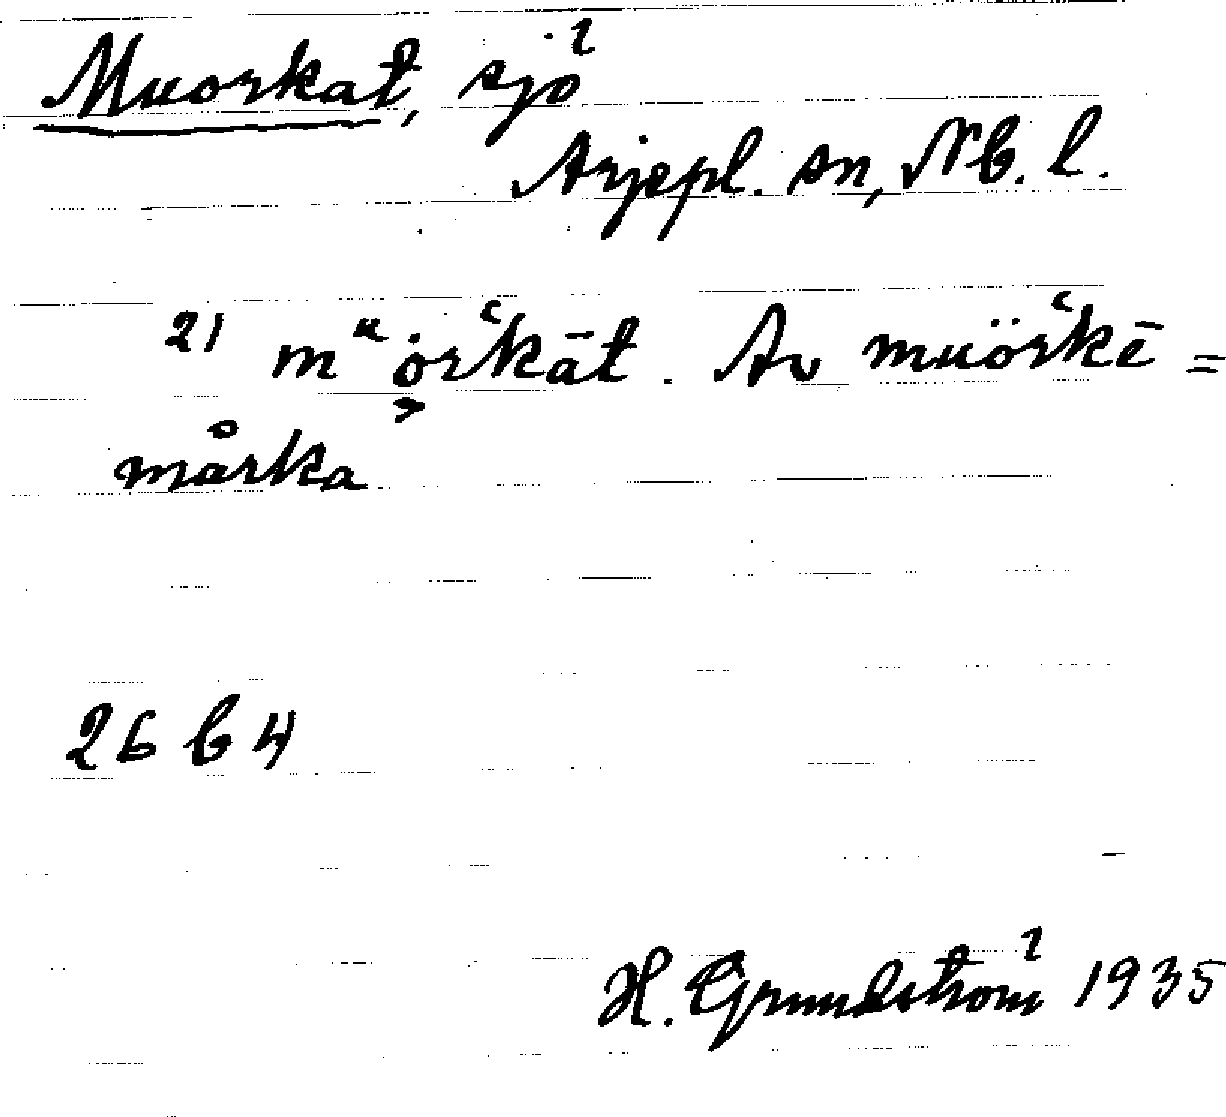 Muorkat, sjö
Arjepl. sn, Nb. l.
21 mᵘȯr̆kāt. Av muörʽkē =
mårka
26 b 4
H. Grundström 1935